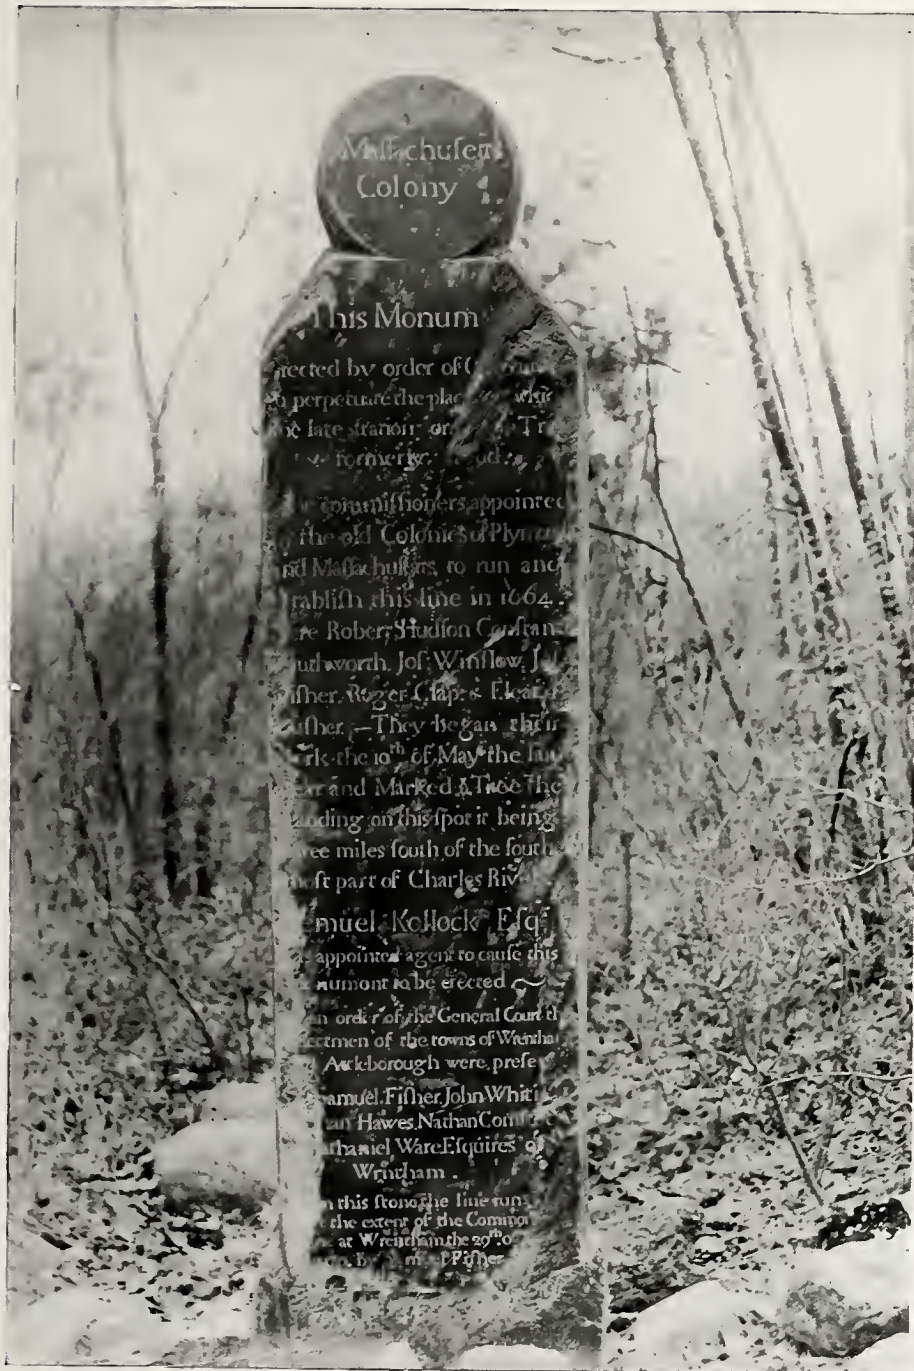 Maſſachuſetts
Colony
This Monum
rected by order of
perpetuate the plac
late ſtation
formerly
commiſſioners appointed
the old Colonies of Plym
nd Maſſachuſetts, to run and
tabliſh this line in 1664.
re Robert Studſon Conſtan
uthworth, Joſ: Winſlow, Jo
iſher, Roger Clap, & Eleaz
uſher.—They began their
rk the 10th of May the ſam
ear and Marked a Tree the
anding on this ſpot it being
ree miles ſouth of the ſouth
oſt part of Charles Riv
muel Kollock Eſqr
appointed agent to cauſe this
nument to be erected
n order of the General Court th
ectmen of the towns of Wrentha
Attleborough were preſe
amuel Fiſher, John Whiti
Hawes, Nathan Comſ
thaniel Ware Eſquires of
Wrintham.
n this ſtone the line runs
the extent of the Common
at Wrentham the 29th o
Fiſher